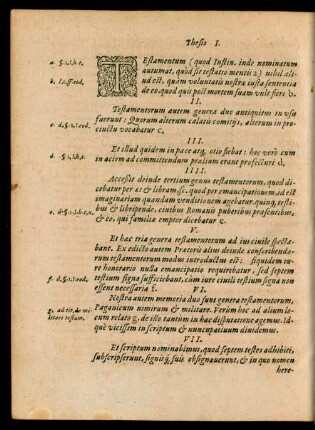 Thesis I.
TEstamentum (quod Justin. inde nominatum
autumat, quod sit testatio mentis a) nihil ali-
ud est, quàm voluntatis nostra justa sententia
de eo quod quis post mortem suam vult fieri b.
II.
Testamentorum autem genera duo antiquitus in usu
fuerunt: Quorum alterum calatis comitijs, alterum in pro-
cinctu vocabatur c.
III.
Et illud quidem in pace atq. otio fiebat: hoc verò cum
in aciem ad committendum prælium erant profecturi d.
IIII.
Accessit deinde tertium genus testamentorum, quod di-
cebatur per æs & libram: sc. quod per emancipationem, id est
imaginariam quandam venditionem agebatur, quinq. testi-
bus & libripende, civibus Romanis puberibus præsentibus,
& eo, qui familiæ emptor dicebatur e.
V.
Et hæc tria genera testamentorum ad ius civile specta-
bant. Ex edicto autem Prætoris alius deinde conscribendo-
rum testamentorum modus introductus est: siquidem iu-
re honorario nulla emancipatio requirebatur, sed septem
testium signa sufficiebant, cùm iure civili testium signa non
essent necessaria f.
VI.
Nostra autem memoria duo sunt genera testamentorum,
Paganicum nimirum & militare. Verùm hoc ad alium lo-
cum relato g, de illo tantùm in hac disputatione agemus. Id-
què vicissim in scriptum & nuncupativum dividemus.
VII.
Et scriptum nominabimus, quod septem testes adhibiti,
subscripserunt, signisq́; suis obsignaverunt, & in quo nomen
here-
a. §.1.I.h.t.
c. d. §.1.I.eod.
g. ad tit. de mi-
litari testam.